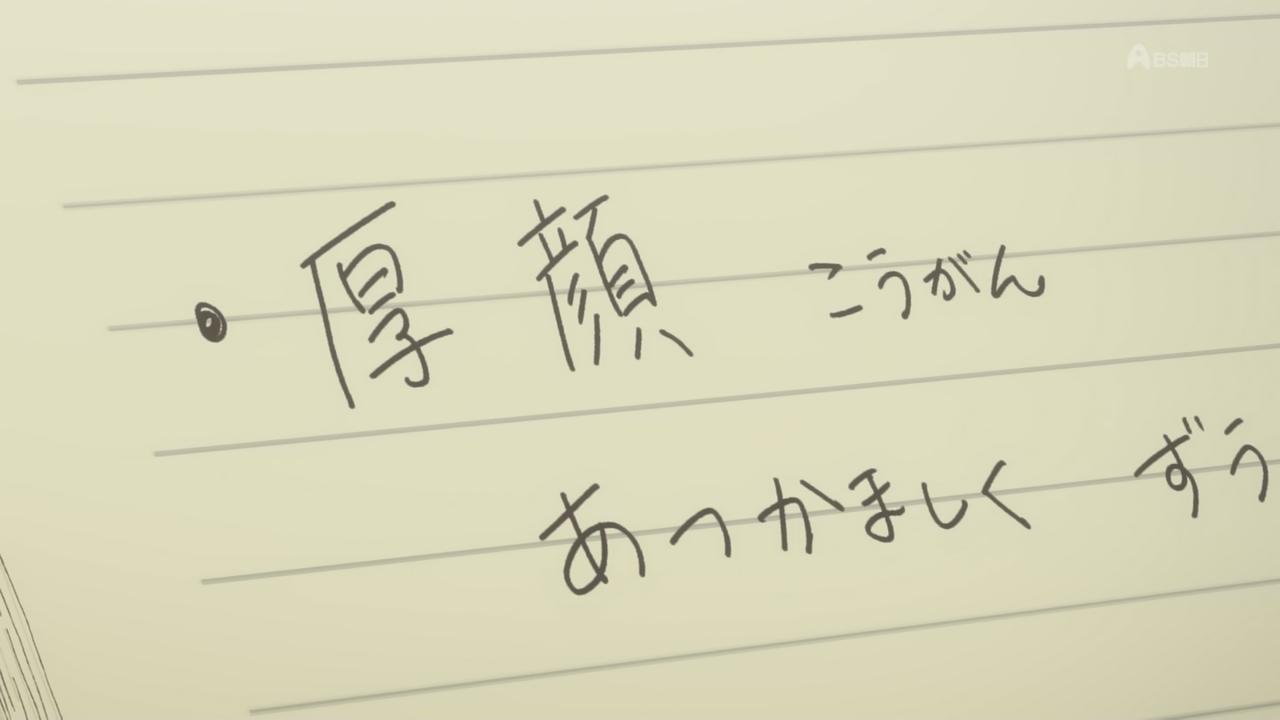 BS朝日
・厚顔 こうがん
あつかましく ずう